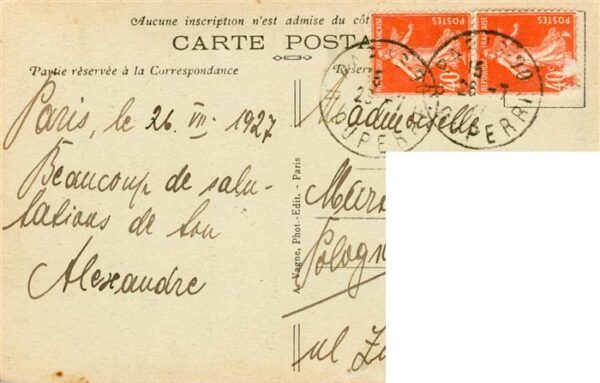 Aucune inscription n'est admise du côt
CARTE POSTA
Partie réservée à la Correspondance
Réserv
POSTES
40
POSTES
40
Paris, le 26 VII 1927
Beaucoup de salu-
tations de ton
Alexandre
A. Vagne, Phot.-Edit. - Paris
Mademoiselle
Mar
Pologn
ul